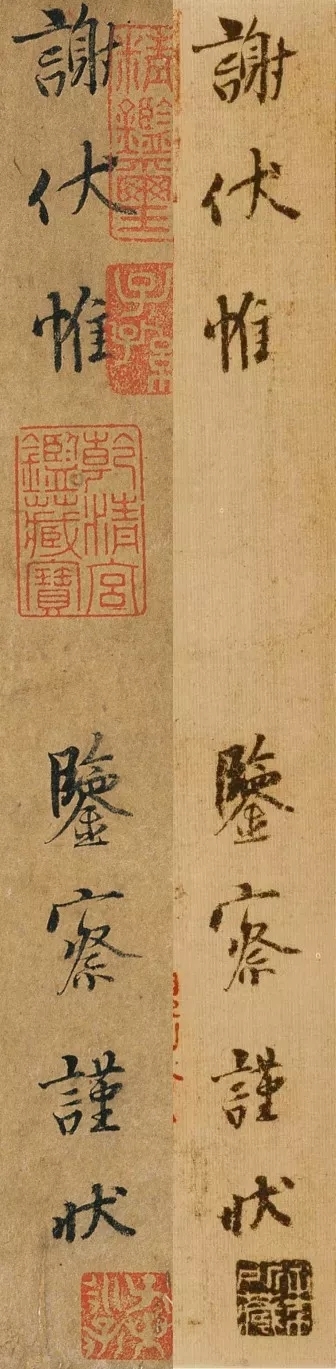 謝伏惟　鑒察謹狀
謝伏惟　鑒察謹狀
乾清宮
鑑藏寶